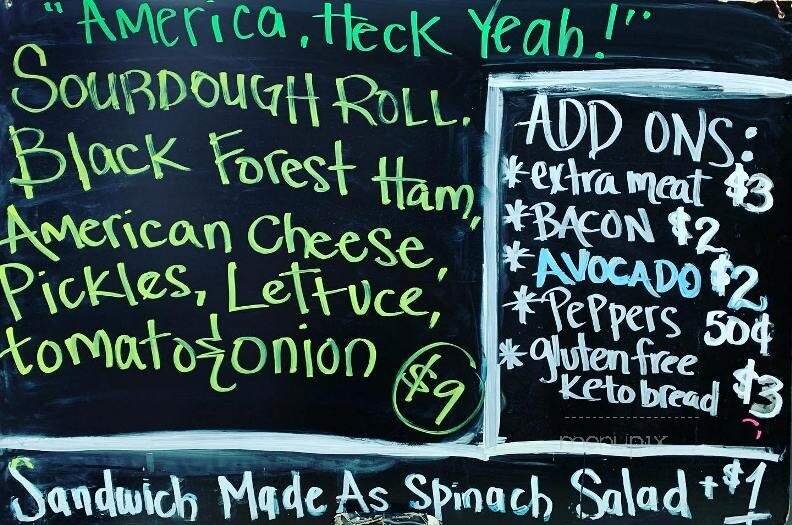 "America, Heck Yeah!"
Sourdough Roll.
Black Forest Ham,
American Cheese,
Pickles, Lettuce,
tomato & onion
$9
ADD ONS:
* extra meat $3
* BACON $2
* AVOCADO $2
* Peppers 50¢
* gluten free
keto bread $3
menupix
Sandwich Made As Spinach Salad +$1